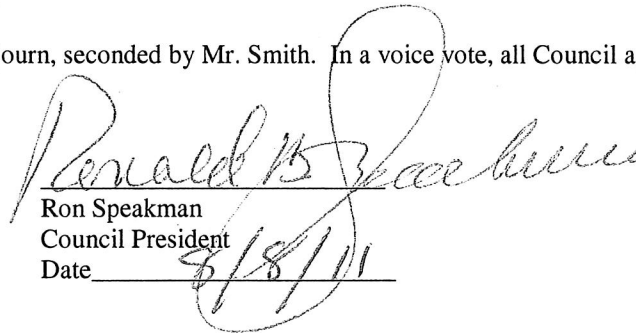 ourn, seconded by Mr. Smith. In a voice vote, all Council a
Ronald B Speakman
Ron Speakman
Council President
Date 8/8/11